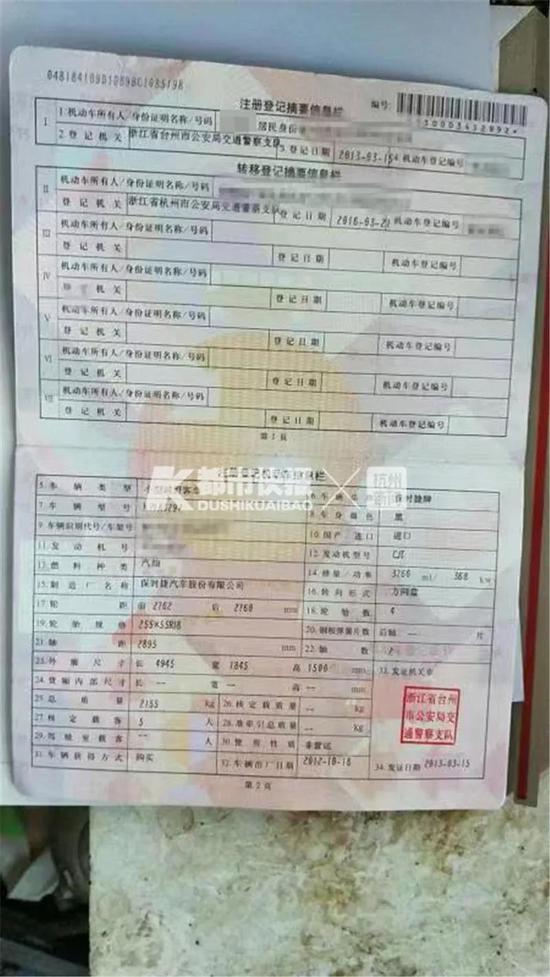 048184109D1089BC1085198
注册登记摘要信息栏
编号:
*330003432892*
I
1.机动车所有人/身份证明名称/号码 居民身份
2.登记机关 浙江省台州市公安局交通警察支队 3.登记日期 2013-03-15 4.机动车登记编号
转移登记摘要信息栏
II
机动车所有人/身份证明名称/号码
登记机关 浙江省杭州市公安局交通警察支队 登记日期 机动车登记编号
III
机动车所有人/身份证明名称/号码
登记机关 登记日期 机动车登记编号
IV
机动车所有人/身份证明名称/号码
登记机关 登记日期 机动车登记编号
V
机动车所有人/身份证明名称/号码
登记机关 登记日期 机动车登记编号
VI
机动车所有人/身份证明名称/号码
登记机关 登记日期 机动车登记编号
VII
机动车所有人/身份证明名称/号码
登记机关 登记日期 机动车登记编号
第1页
注册登记机动车信息栏
都市快报
DUSHIKUAIBAO
杭州
新闻
5.车辆类型 6.车辆品牌 保时捷牌
7.车辆型号 8.车身颜色 黑
9.车辆识别代号/车架号 10.国产/进口 进口
11.发动机号 12.发动机型号
13.燃料种类 汽油 14.排量/功率 ml/ kw
15.制造厂名称 保时捷汽车股份有限公司 16.转向形式 方向盘
17.轮距 前 后 mm 18.轮胎数 4
19.轮胎规格 20.钢板弹簧片数 后轴 -- 片
21.轴距 2895 mm 22.轴数 2
23.外廓尺寸 长 4945 宽 1845 高 1500 mm 33.发证机关章
24.货厢内部尺寸 长 -- 宽 -- 高 -- mm
25.总质量 2155 kg 26.核定载质量 -- kg
27.核定载客 5 人 28.准牵引总质量 -- kg
29.驾驶室载客 -- 人 30.使用性质 非营运
31.车辆获得方式 购买 32.车辆出厂日期 2012-10-18 34.发证日期 2013-03-15
浙江省台州
市公安局交
通警察支队
第2页